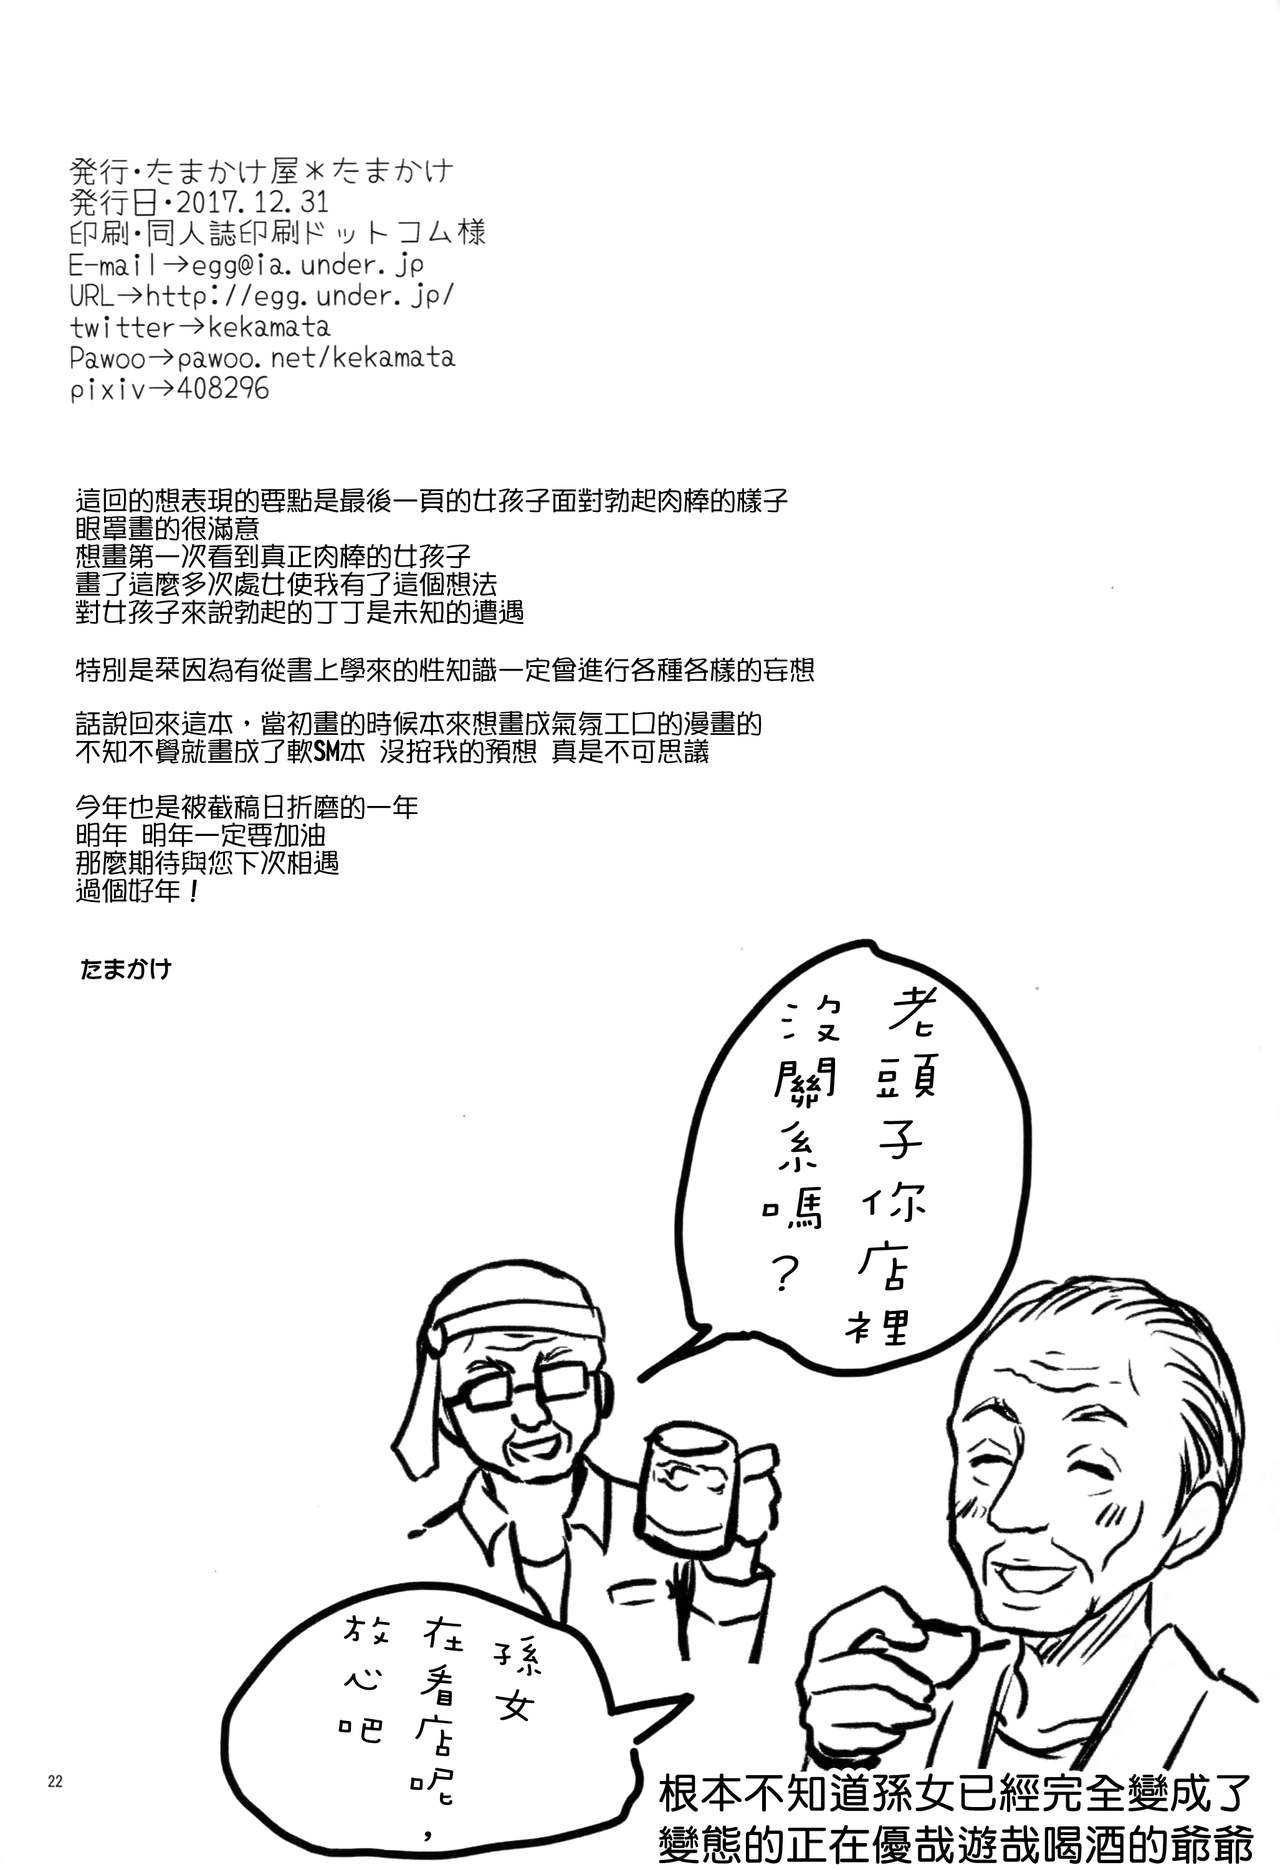 発行・たまかけ屋＊たまかけ
発行日・2017.12.31
印刷・同人誌印刷ドットコム様
E-mail→egg@ia.under.jp
URL→http://egg.under.jp/
twitter→kekamata
Pawoo→pawoo.net/kekamata
pixiv→408296
這回的想表現的要點是最後一頁的女孩子面對勃起肉棒的樣子
眼罩畫的很滿意
想畫第一次看到真正肉棒的女孩子
畫了這麼多次處女使我有了這個想法
對女孩子來說勃起的丁丁是未知的遭遇
特別是栞因為有從書上學來的性知識一定會進行各種各樣的妄想
話說回來這本，當初畫的時候本來想畫成氣氛工口的漫畫的
不知不覺就畫成了軟SM本 沒按我的預想 真是不可思議
今年也是被截稿日折磨的一年
明年 明年一定要加油
那麼期待與您下次相遇
過個好年！
たまかけ
老頭子你店裡
沒關系嗎？
孫女
在看店呢，
放心吧
22
根本不知道孫女已經完全變成了
變態的正在優哉遊哉喝酒的爺爺